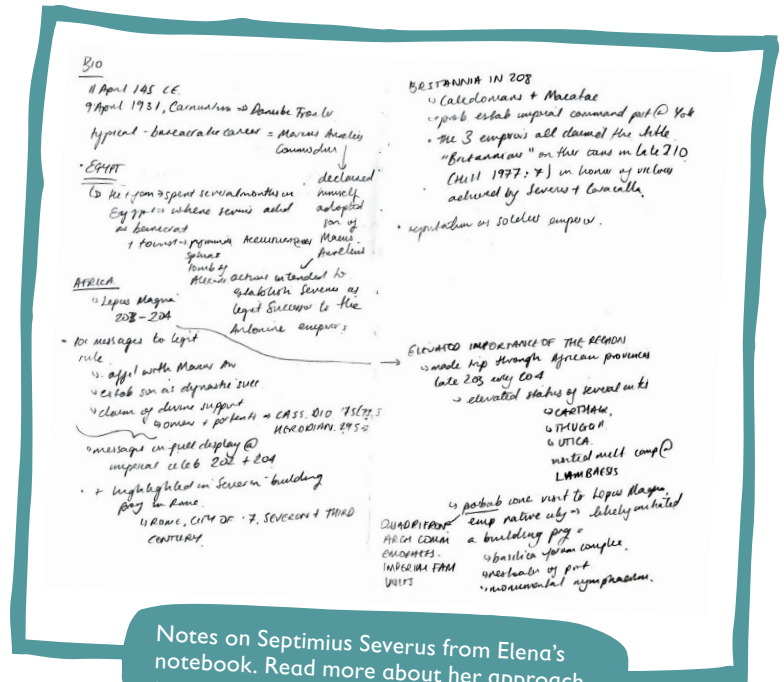 BIO
11 April 145 CE.
9 April 1931, Carnuntum ⇒ Danube Frontier
typical - bureaucratic career = Marcus Aurelius
Commodus
• EGYPT
declared
↳ He + fam → spent several months in
himself
Egypt → where served acted
adopted
as bureaucrat
son of
+ tourist → pyramids
Marcus
sphinx
Aurelius
tomb of
actions intended to
establish Severus as
legit Successor to the
Antonine emperors
AFRICA
↳ Lepcis Magna
203 - 204
• messages to legit
rule
↳ affil with Marcus Au
↳ estab son as dynastic succ
↳ claim of divine support
↳ omens + portents → CASS. DIO 75
HERODIAN.
↳ messages on full display @
imperial celeb 202 + 204
• + highlighted in Severan building
prog in Rome.
↳ ROME, CITY OF · 7, SEVERAN + THIRD
CENTURY.
BRITANNIA IN 208
↳ Caledonians + Maeatae
↳ prob estab imperial command post @ York
• the 3 emperors all claimed the title
"Britannicus" on their coins in late 210
(Hill 1977: 7) in honor of victories
achieved by Severus + Caracalla.
• reputation as soldier emperor.
ELEVATED IMPORTANCE OF THE REGION
↳ made trip through African provinces
late 203 early 204
↳ elevated status of several cities
↳ CARTHAGE
↳ THUGGA
↳ UTICA.
visited milit camp @
LAMBAESIS
↳ probab one visit to Lepcis Magna,
emp native city → likely initiated
a building prog =
↳ basilica forum complex.
↳ of port
↳ monumental nymphaeum.
QUADRIFRON
ARCH COMM
EMPHASIS.
IMPERIAL FAM
UNITY
Notes on Septimius Severus from Elena's
notebook. Read more about her approach